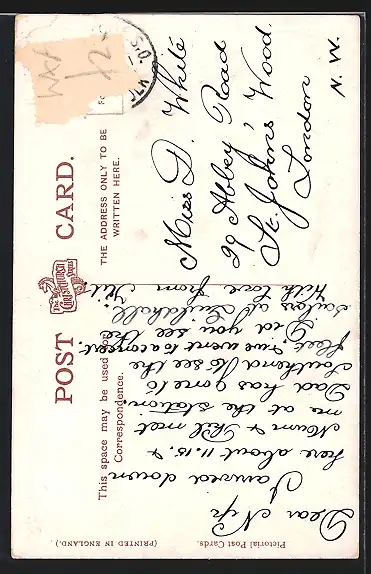 POST CARD.
The "CHRISTCHURCH" Series
This space may be used for
Correspondence.
THE ADDRESS ONLY TO BE
WRITTEN HERE.
Pictorial Post Cards.
(PRINTED IN ENGLAND.)
Miss D. White
99 Abbey Road
St. John's Wood.
London
N. W.
Dear
I arrived down
here about 11.15. &
Mum & Phil met
me at the station.
Dad has gone to
Southend to see the
fleet, & we went to a concert.
Did you see the
sailors at Guildhall.
With love from
WAX
12